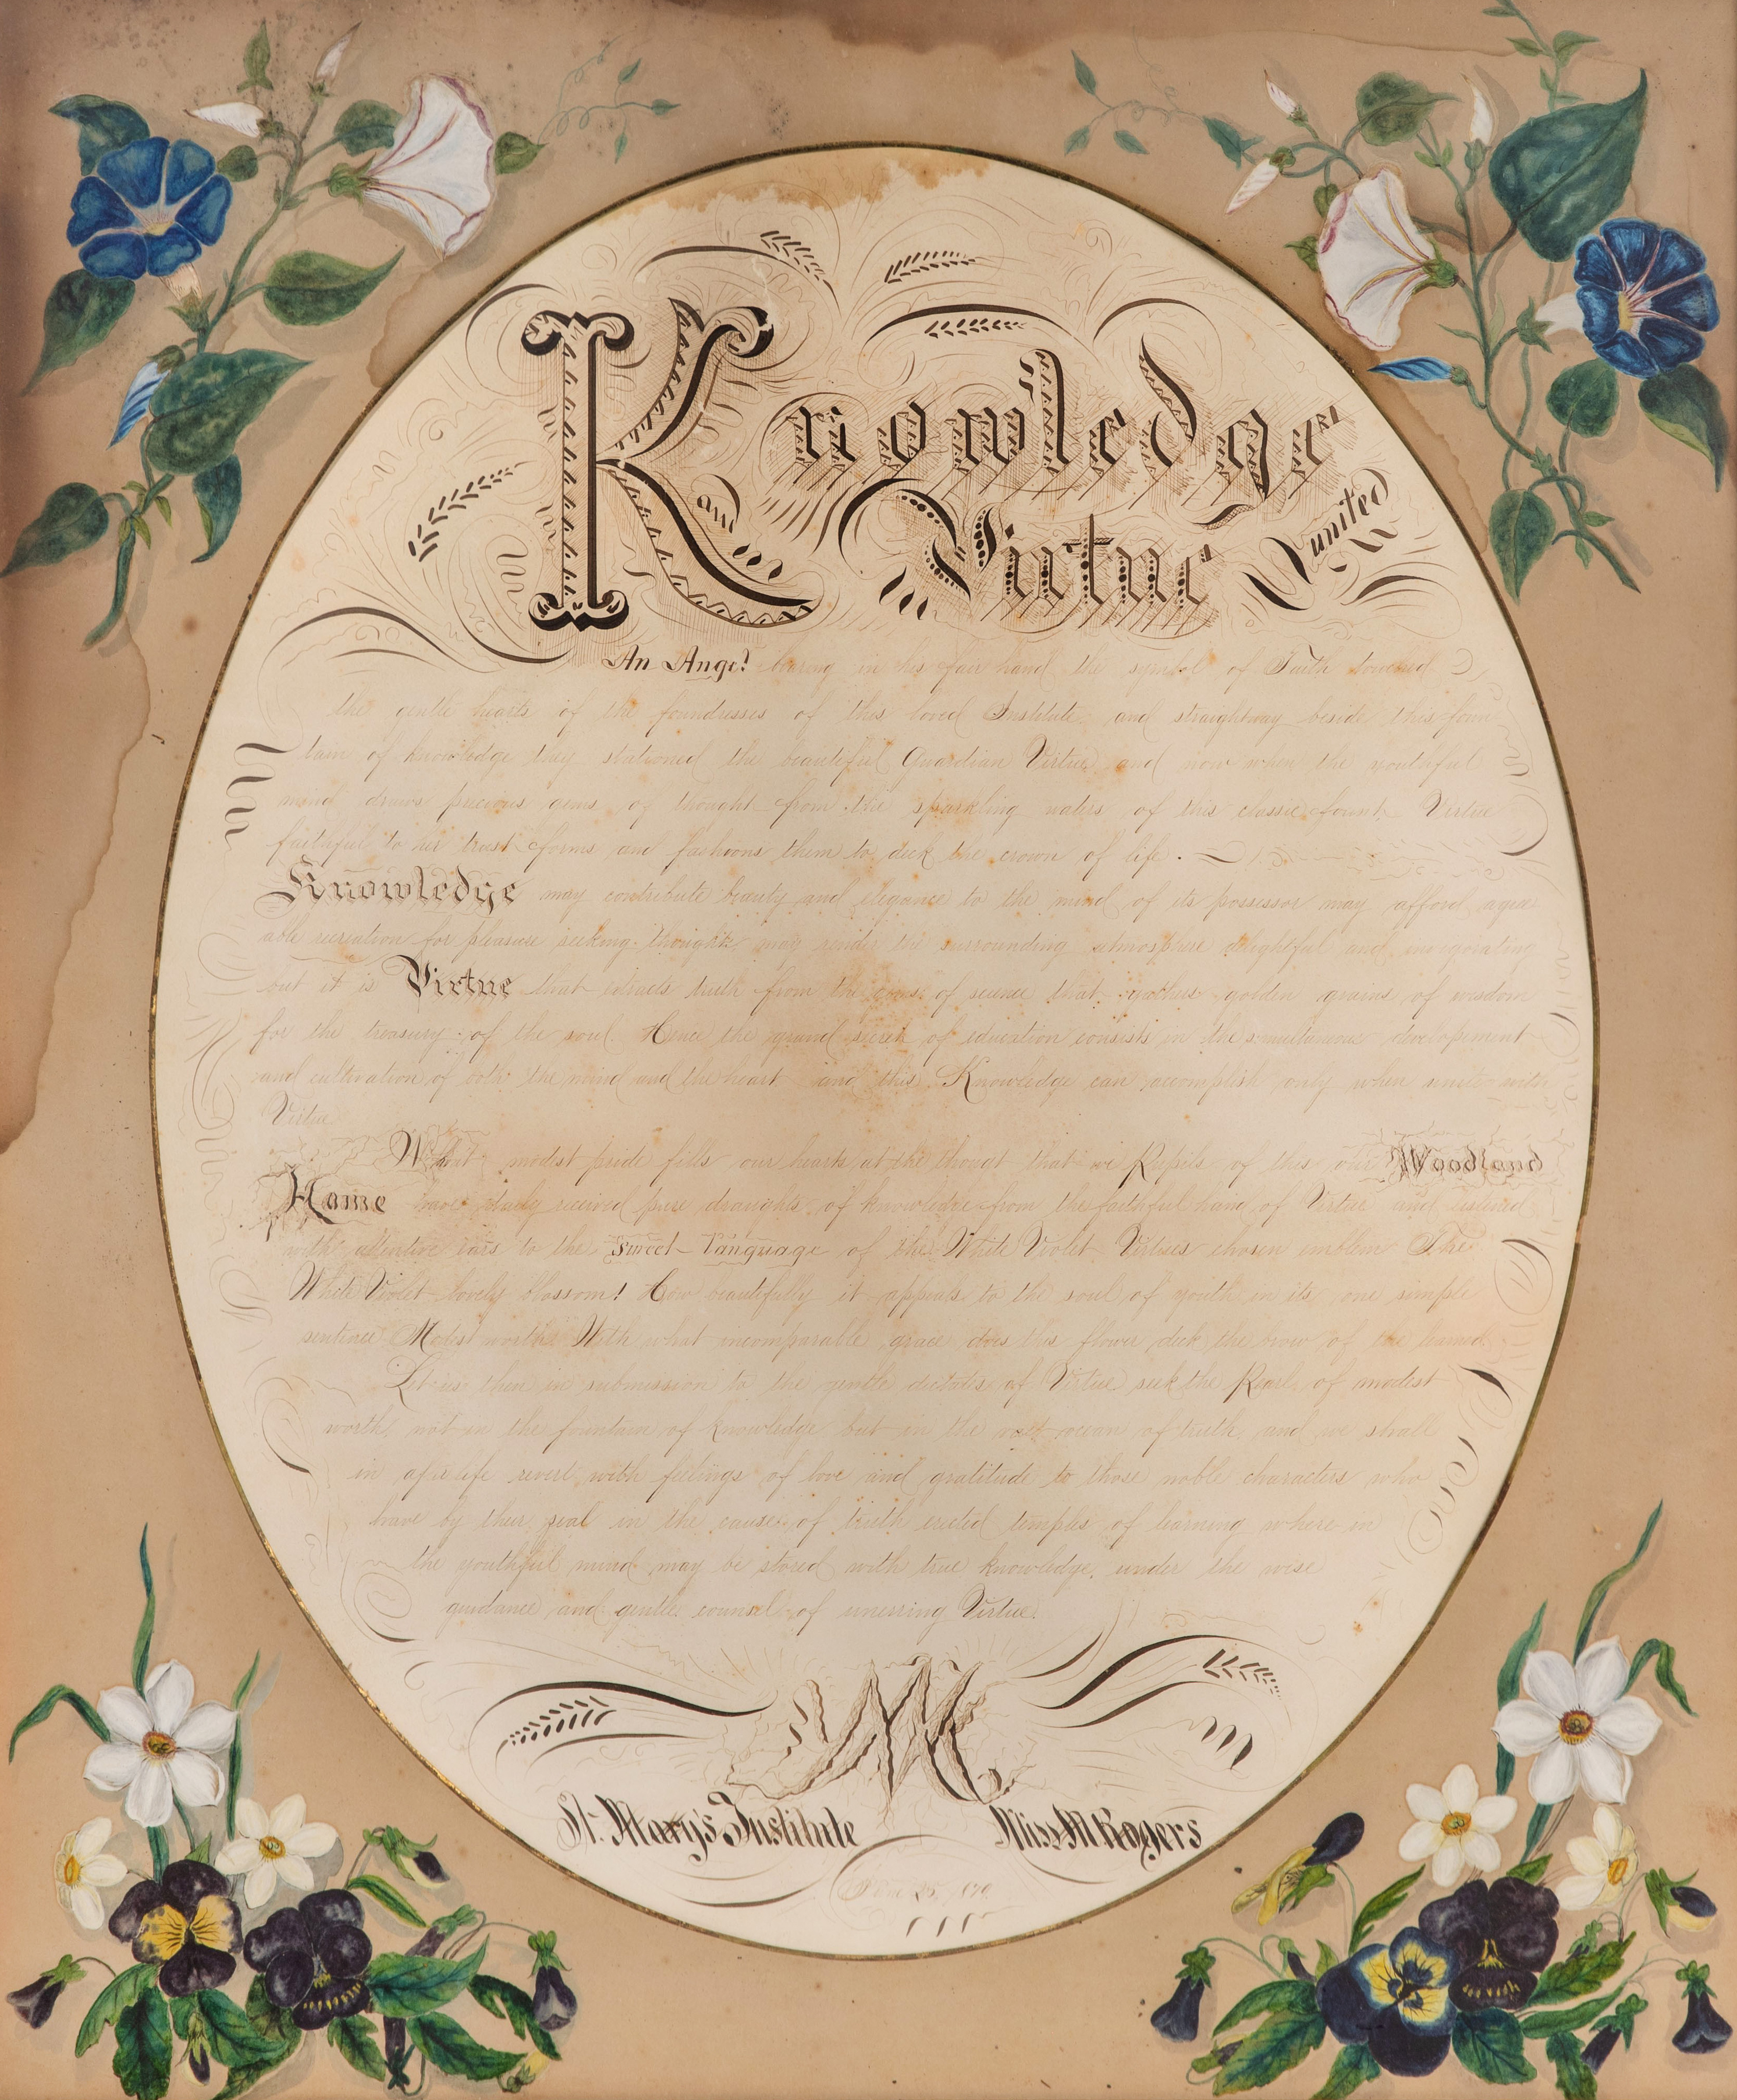 Knowledge
and Virtue united
An Angel bearing in his fair hand the symbol of Faith
the gentle hearts of the foundresses of this loved Institute, and straightway beside this foun
tain of knowledge they stationed the beautiful Guardian Virtue and now when the youthful
mind draws precious gems of thought from the sparkling waters of this classic fount, Virtue
faithful to her trust forms and fashions them to deck the crown of life.
Knowledge may contribute beauty and elegance to the mind of its possessor may afford agree
able recreation for pleasure seeking thoughts may render the surrounding atmosphere delightful and invigorating
but it is Virtue that extracts truth from the of science that gathers golden grains of wisdom
for the treasury of the soul. Hence the grand of education consists in the simultaneous development
and cultivation of both the mind and the heart and this Knowledge can accomplish only when with
Virtue
What modest pride fills our hearts at the thought that we Pupils of this our Woodland
Home have daily received pure draughts of knowledge from the faithful hand of Virtue and listened
with attentive ears to the sweet language of the White Violet Virtues chosen emblem The
White Violet lovely blossom! How beautifully it appeals to the soul of youth in its one simple
sentence Modest worth. With what incomparable grace does this flower deck the brow of the learned.
Let us then in submission to the gentle dictates of Virtue seek the Pearl of modest
worth, not in the fountain of knowledge but in the vast ocean of truth, and we shall
in after life revert with feelings of love and gratitude to those noble characters who
have by their zeal in the cause of truth erected temples of learning where in
the youthful mind may be stored with true knowledge, under the wise
guidance and gentle counsel of unerring Virtue.
M
St. Mary's Institute Miss M Rogers